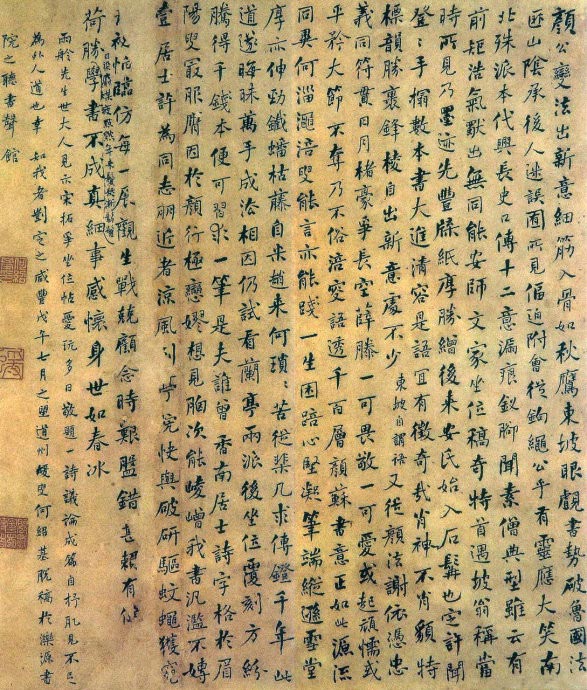 顏公法出新意細筋入骨如秋鷹東坡眼覷書勢破魯國法
匪山陰承後人迷誤面所見偪迫附會從鉤繩公乎有靈應大笑南
北殊派本代興長史口傳十二意漏痕釵腳聞素僧典型雖云有
前矩浩氣獸出無同能安師文家坐位稿奇特首遇坡翁稱當
時所見乃墨迹先豐縢紙厚勝繒後來安氏始入石髯也定許聞
登登手搨數本書大進清容是語宜有徵奇哉肖神不肖貌特
標韻勝裹鋒棱自出新意處不少東坡自謂語又從顏法謝依憑忠
義同符貫日月楮豪爭長空薛滕一可畏敬一可愛或起頑懦或
平矜大節不奪乃不俗涪叟語透千百層顏蘇書意正如此源流
同異何淄澠涪叟能言亦能踐一生困踣心堅凝筆端縱遜雪堂
厚亦伸勁鐵蟠枯藤自米趙來何瑣瑣苦從棐几求傳鐙千年此
道遂晦昧萬手成冾相因仍試看蘭亭兩派後坐位覆刻方紛
騰得千錢本便可習求一筆是夫誰曾香南居士詩字格於眉
陽叟最服膺因於顏行極戀嫪想見胸次能崚嶒我書汎濫不專
壹居士許為同志朋近者涼風引快與破研驅蚊蠅獲窺
祕帖臨仿每一展觀生戰兢顧念時艱盤錯甚賴有
荷勝學書不成真細事感懷身世如春冰
雨舲先生世大人見示宋拓爭坐位帖愛玩多日敬題一詩議論成篇自抒肊見不足
為外人道也幸 如我者劃定之咸豐戊午七月之朢道州蝯叟何紹基脫稿於濼源書
院之聽書聲館